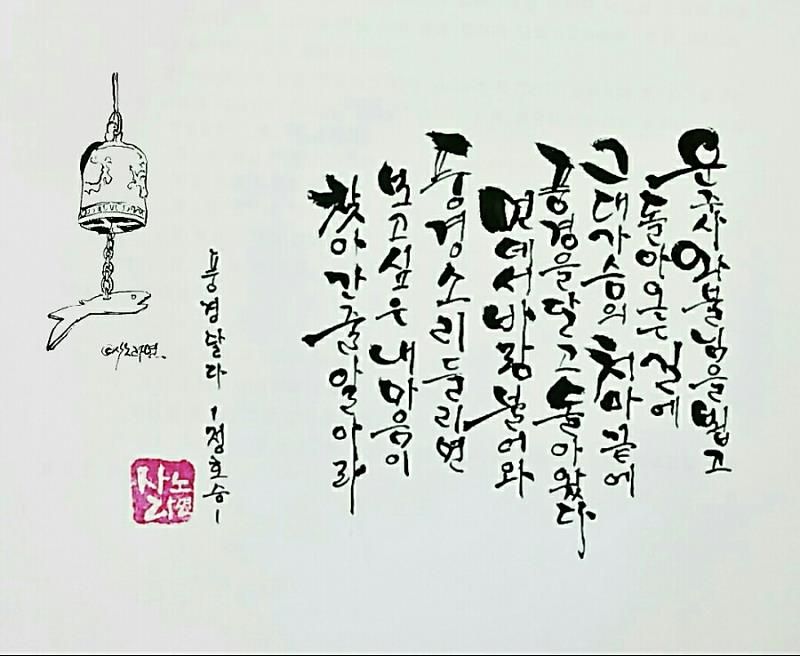 운주사 와불님을 뵙고
돌아오는 길에
그대 가슴의 처마 끝에
풍경을 달고 돌아왔다
먼데서 바람 불어와
풍경소리 들리면
보고싶은 내 마음이
찾아간 줄 알아라
풍경달다 - 정호승 -